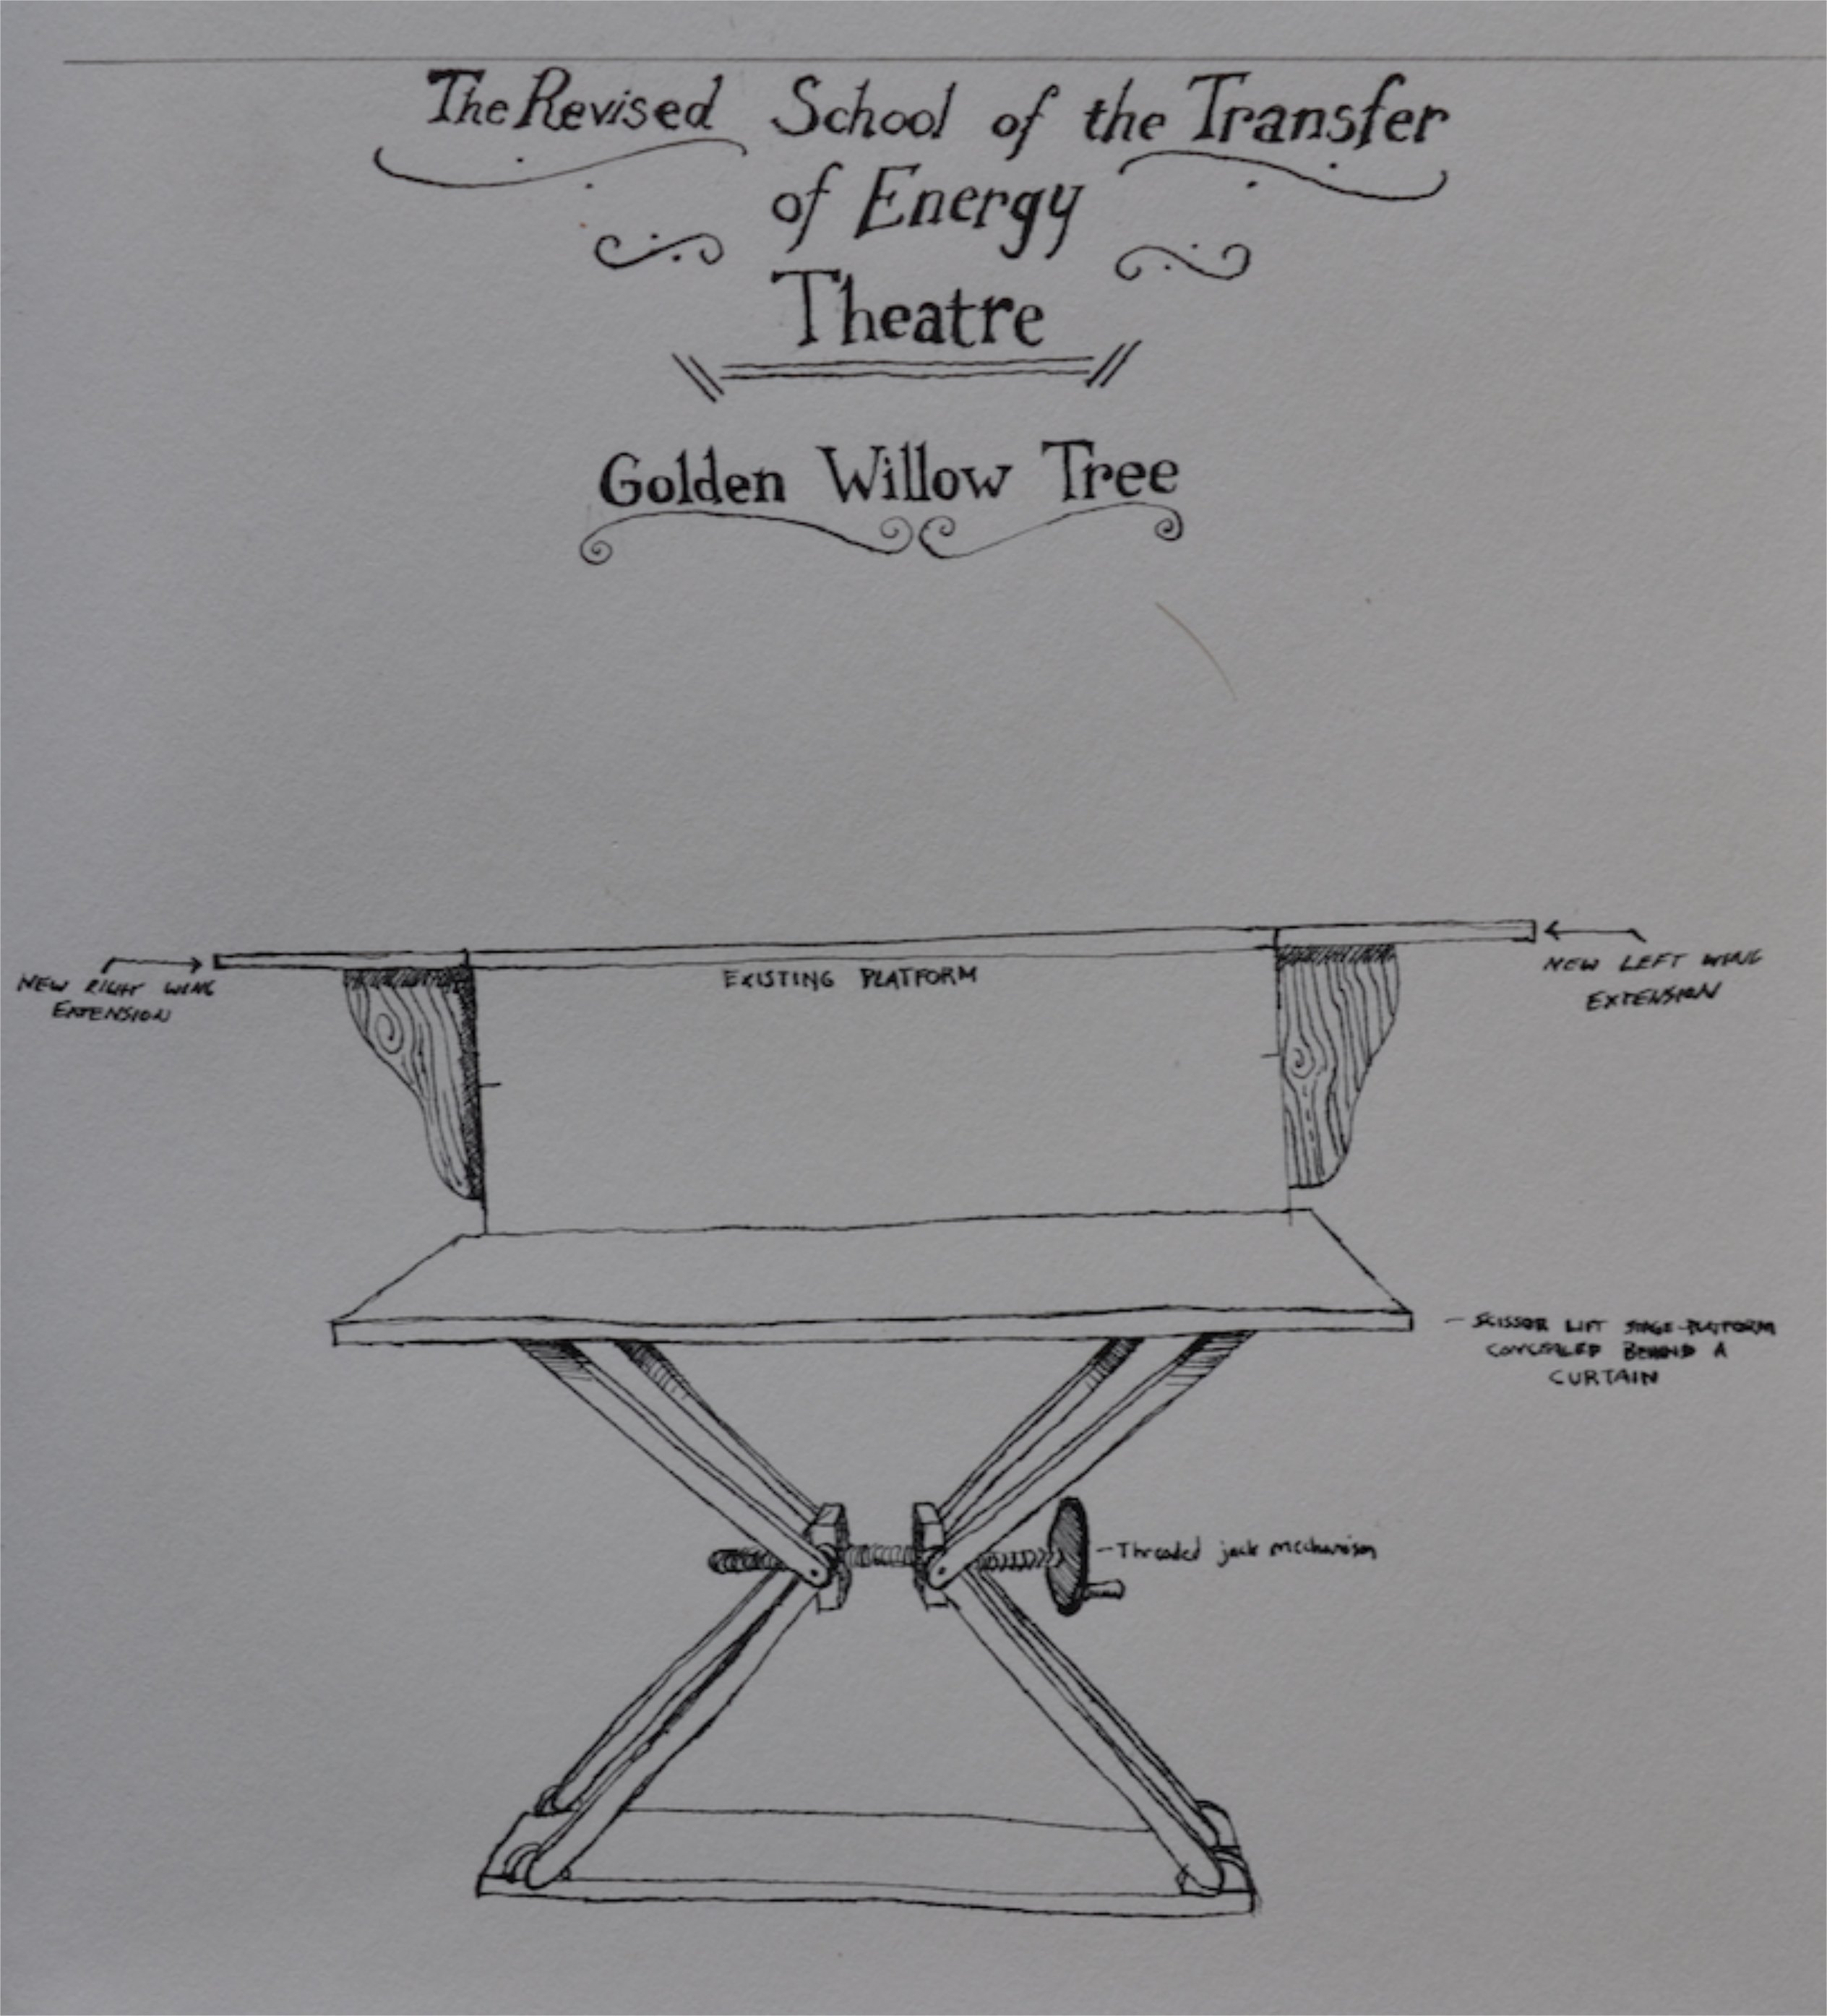 The Revised School of the Transfer
of Energy
Theatre
Golden Willow Tree
NEW RIGHT WING
EXTENSION
EXISTING PLATFORM
NEW LEFT WING
EXTENSION
- SCISSOR LIFT STAGE-PLATFORM
CONCEALED BEHIND A
CURTAIN
- Threaded jack mechanism